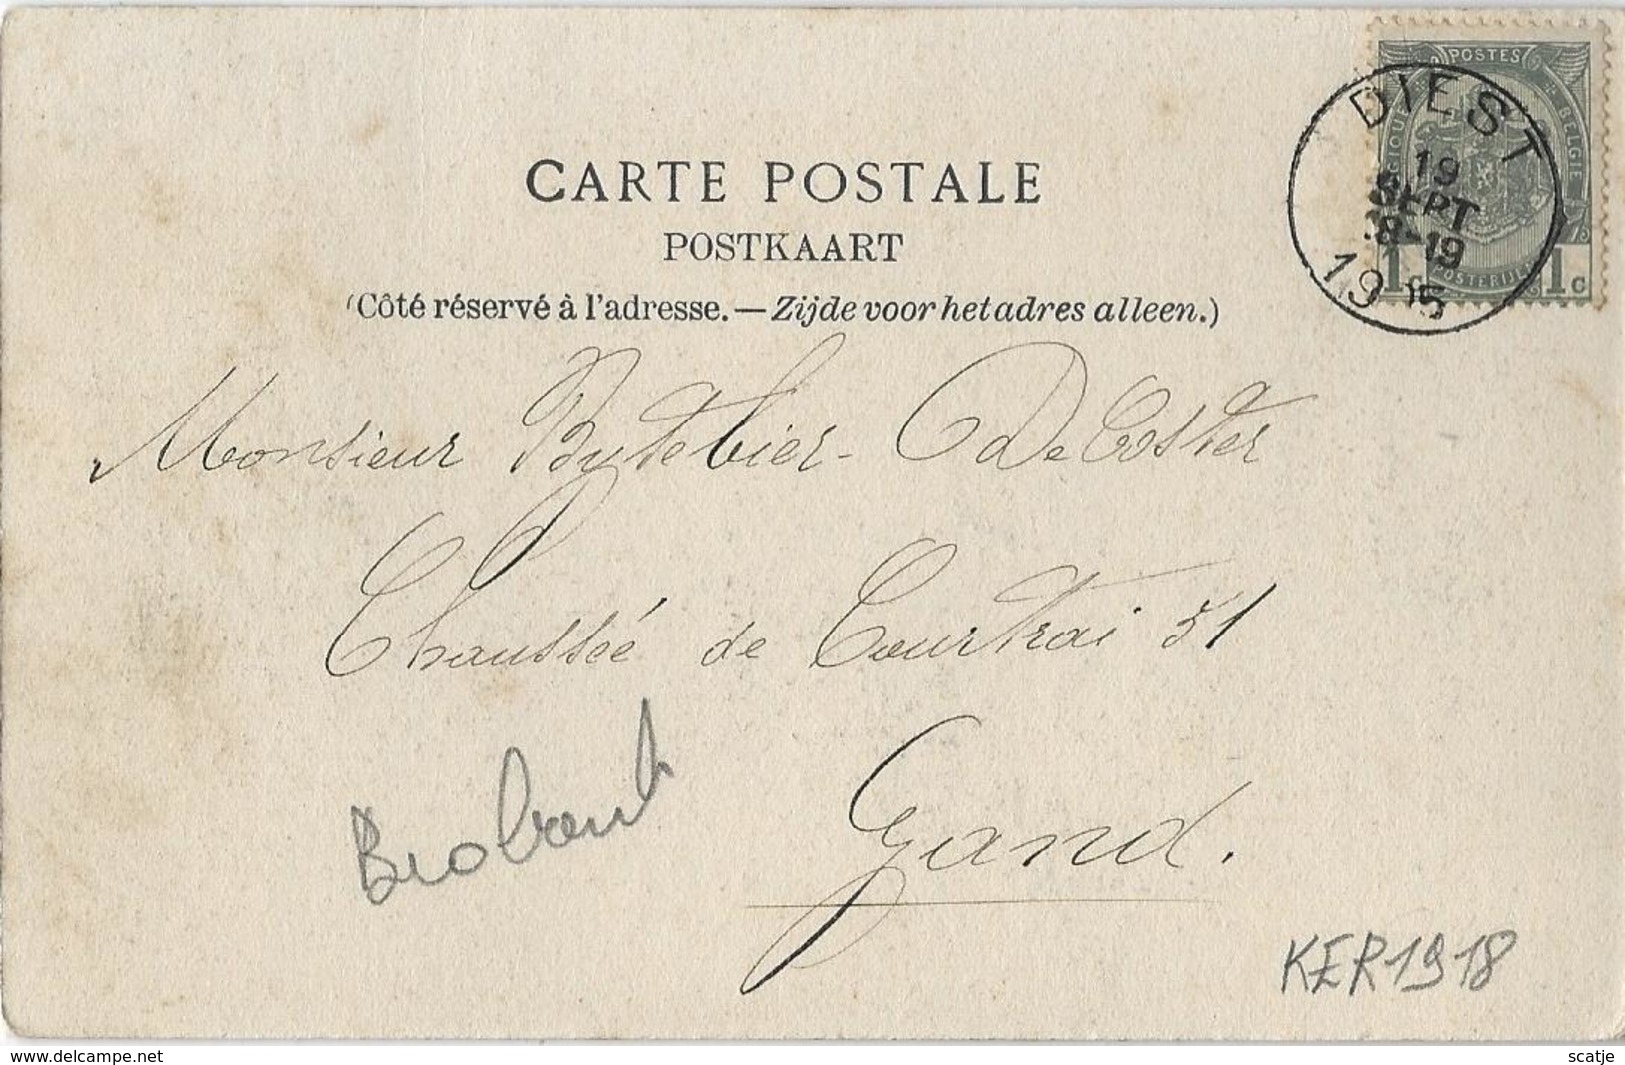 POSTES
BELGIQUE
BELGIE
DIEST
19
SEPT
18-19
1905
1c
POSTERIJEN
1c
CARTE POSTALE
POSTKAART
(Côté réservé à l'adresse. — Zijde voor het adres alleen.)
Monsieur Bytebier - De Coster
Chaussée de Courtrai 51
Gand.
Brabant
KER1918
delcampe.net
scatje